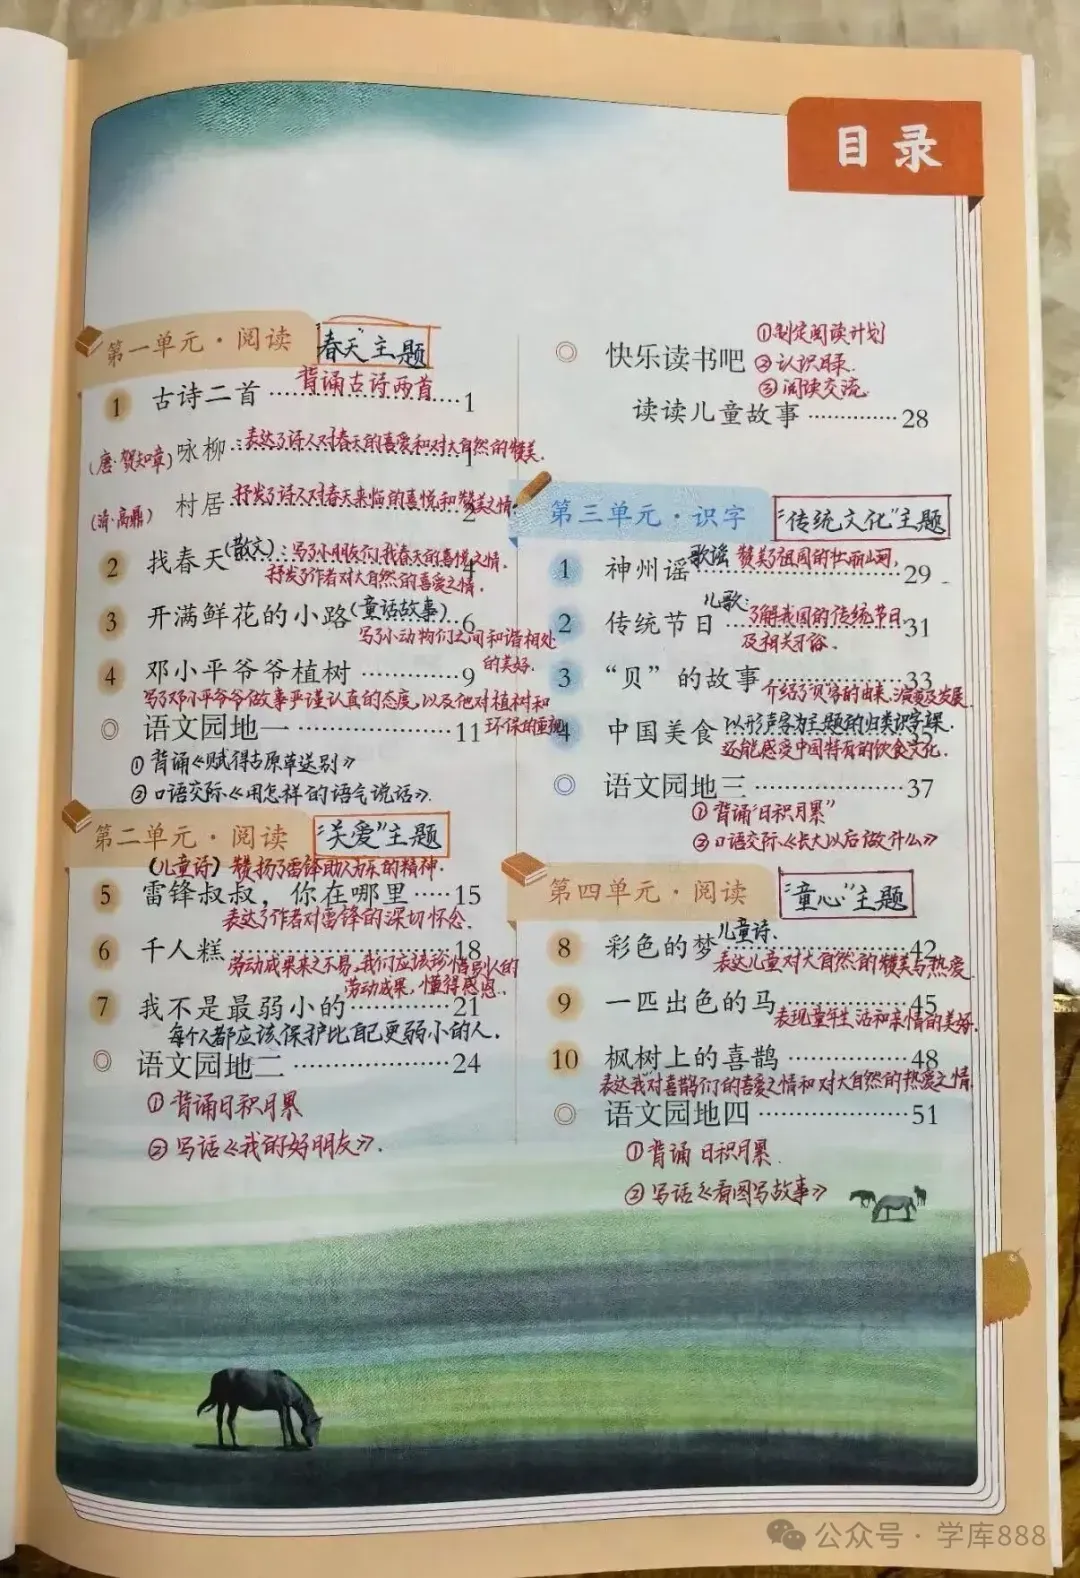 目录
第一单元·阅读 “春天”主题
背诵古诗两首
1 古诗二首 1
(唐·贺知章) 咏柳 1 表达了诗人对春天的喜爱和对大自然的赞美.
(清·高鼎) 村居 2 抒发了诗人对春天来临的喜悦和赞美之情.
2 找春天 (散文): 4 写了小朋友们找春天的喜悦之情.
抒发了作者对大自然的喜爱之情.
3 开满鲜花的小路 (童话故事) 6
写了小动物们之间和谐相处
的美好.
4 邓小平爷爷植树 9
写了邓小平爷爷做事严谨认真的态度,以及他对植树和
环保的重视
语文园地一 11
①背诵《赋得古原草送别》
②口语交际《用怎样的语气说话》.
第二单元·阅读 “关爱”主题
(儿童诗) 赞扬了雷锋助人为乐的精神.
5 雷锋叔叔，你在哪里 15
表达了作者对雷锋的深切怀念.
6 千人糕 18
劳动成果来之不易,我们应该珍惜别人的
劳动成果,懂得感恩.
7 我不是最弱小的 21
每个人都应该保护比自己更弱小的人.
语文园地二 24
①背诵日积月累
②写话《我的好朋友》.
快乐读书吧
①制定阅读计划
②认识目录.
③阅读交流.
读读儿童故事 28
第三单元·识字 “传统文化”主题
1 神州谣 29 歌谣 赞美了祖国的壮丽山河,
2 传统节日 31 儿歌: 了解我国的传统节日
及相关习俗.
3 “贝”的故事 33
介绍了贝字的由来、演变及发展.
4 中国美食 以形声字为主题的归类识字课.
还能感受中国特有的饮食文化.
语文园地三 37
①背诵“日积月累”
②口语交际《长大以后做什么》
第四单元·阅读 “童心”主题
8 彩色的梦 42 儿童诗.
表达儿童对大自然的赞美与热爱.
9 一匹出色的马 45
表现童年生活和亲情的美好.
10 枫树上的喜鹊 48
表达我对喜鹊们的喜爱之情和对大自然的热爱之情.
语文园地四 51
①背诵 日积月累.
②写话《看图写故事》
公众号·学库888